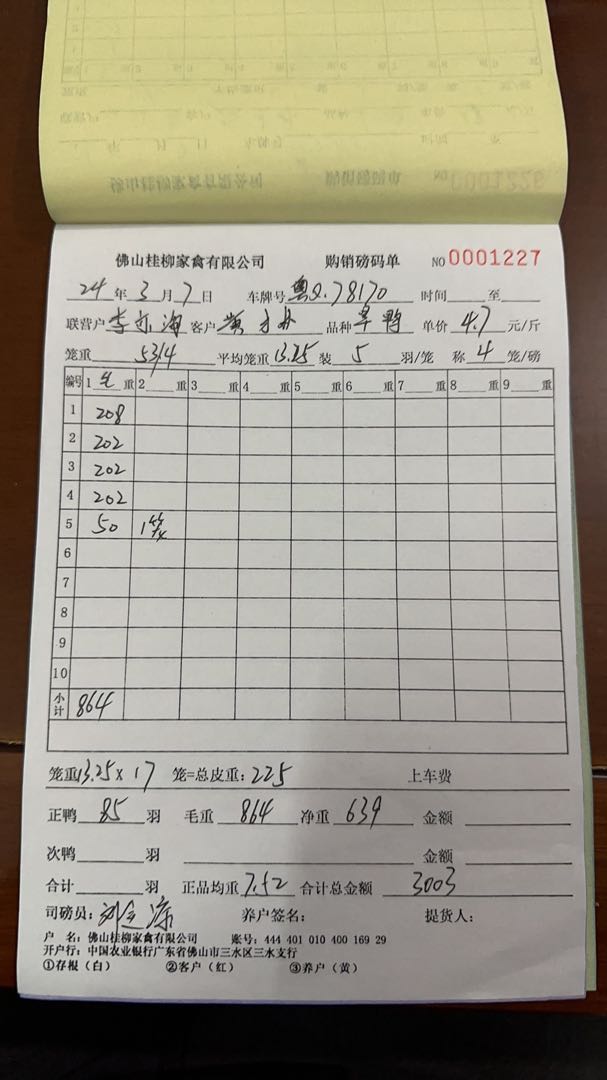 佛山桂柳家禽有限公司 购销磅码单 NO 0001227
24 年 3 月 7 日 车牌号 粤Q.78170 时间 至
联营户 李亦海 客户 品种 旱鸭 单价 4.7 元/斤
笼重 53/4 平均笼重 13.25 装 5 羽/笼 称 4 笼/磅
编号 1 毛 重 2 重 3 重 4 重 5 重 6 重 7 重 8 重 9 重
1 208
2 202
3 202
4 202
5 50 1笼
6
7
8
9
10
小计 864
笼重 13.25 x 17 笼=总皮重: 225 上车费
正鸭 85 羽 毛重 864 净重 639 金额
次鸭 羽 金额
合计 羽 正品均重 7.52 合计总金额 3003
司磅员: 养户签名: 提货人:
户 名: 佛山桂柳家禽有限公司 账号: 444 401 010 400 169 29
开户行: 中国农业银行广东省佛山市三水区三水支行
①存根（白） ②客户（红） ③养户（黄）